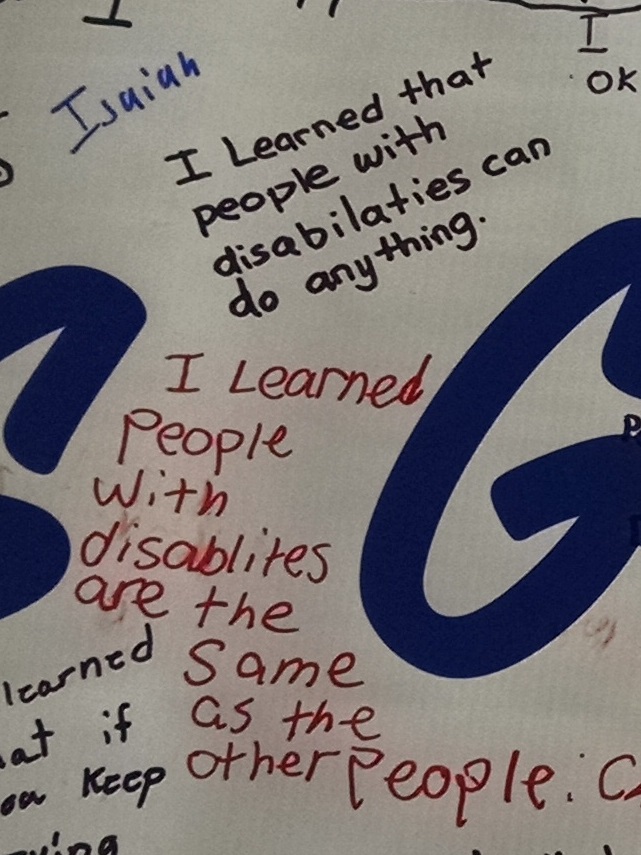 I
I
OK
Isaiah
I Learned that
people with
disabilaties can
do anything.
I Learned
People
With
disablites
are the
Same
as the
other People.
G
learned
if
Keep